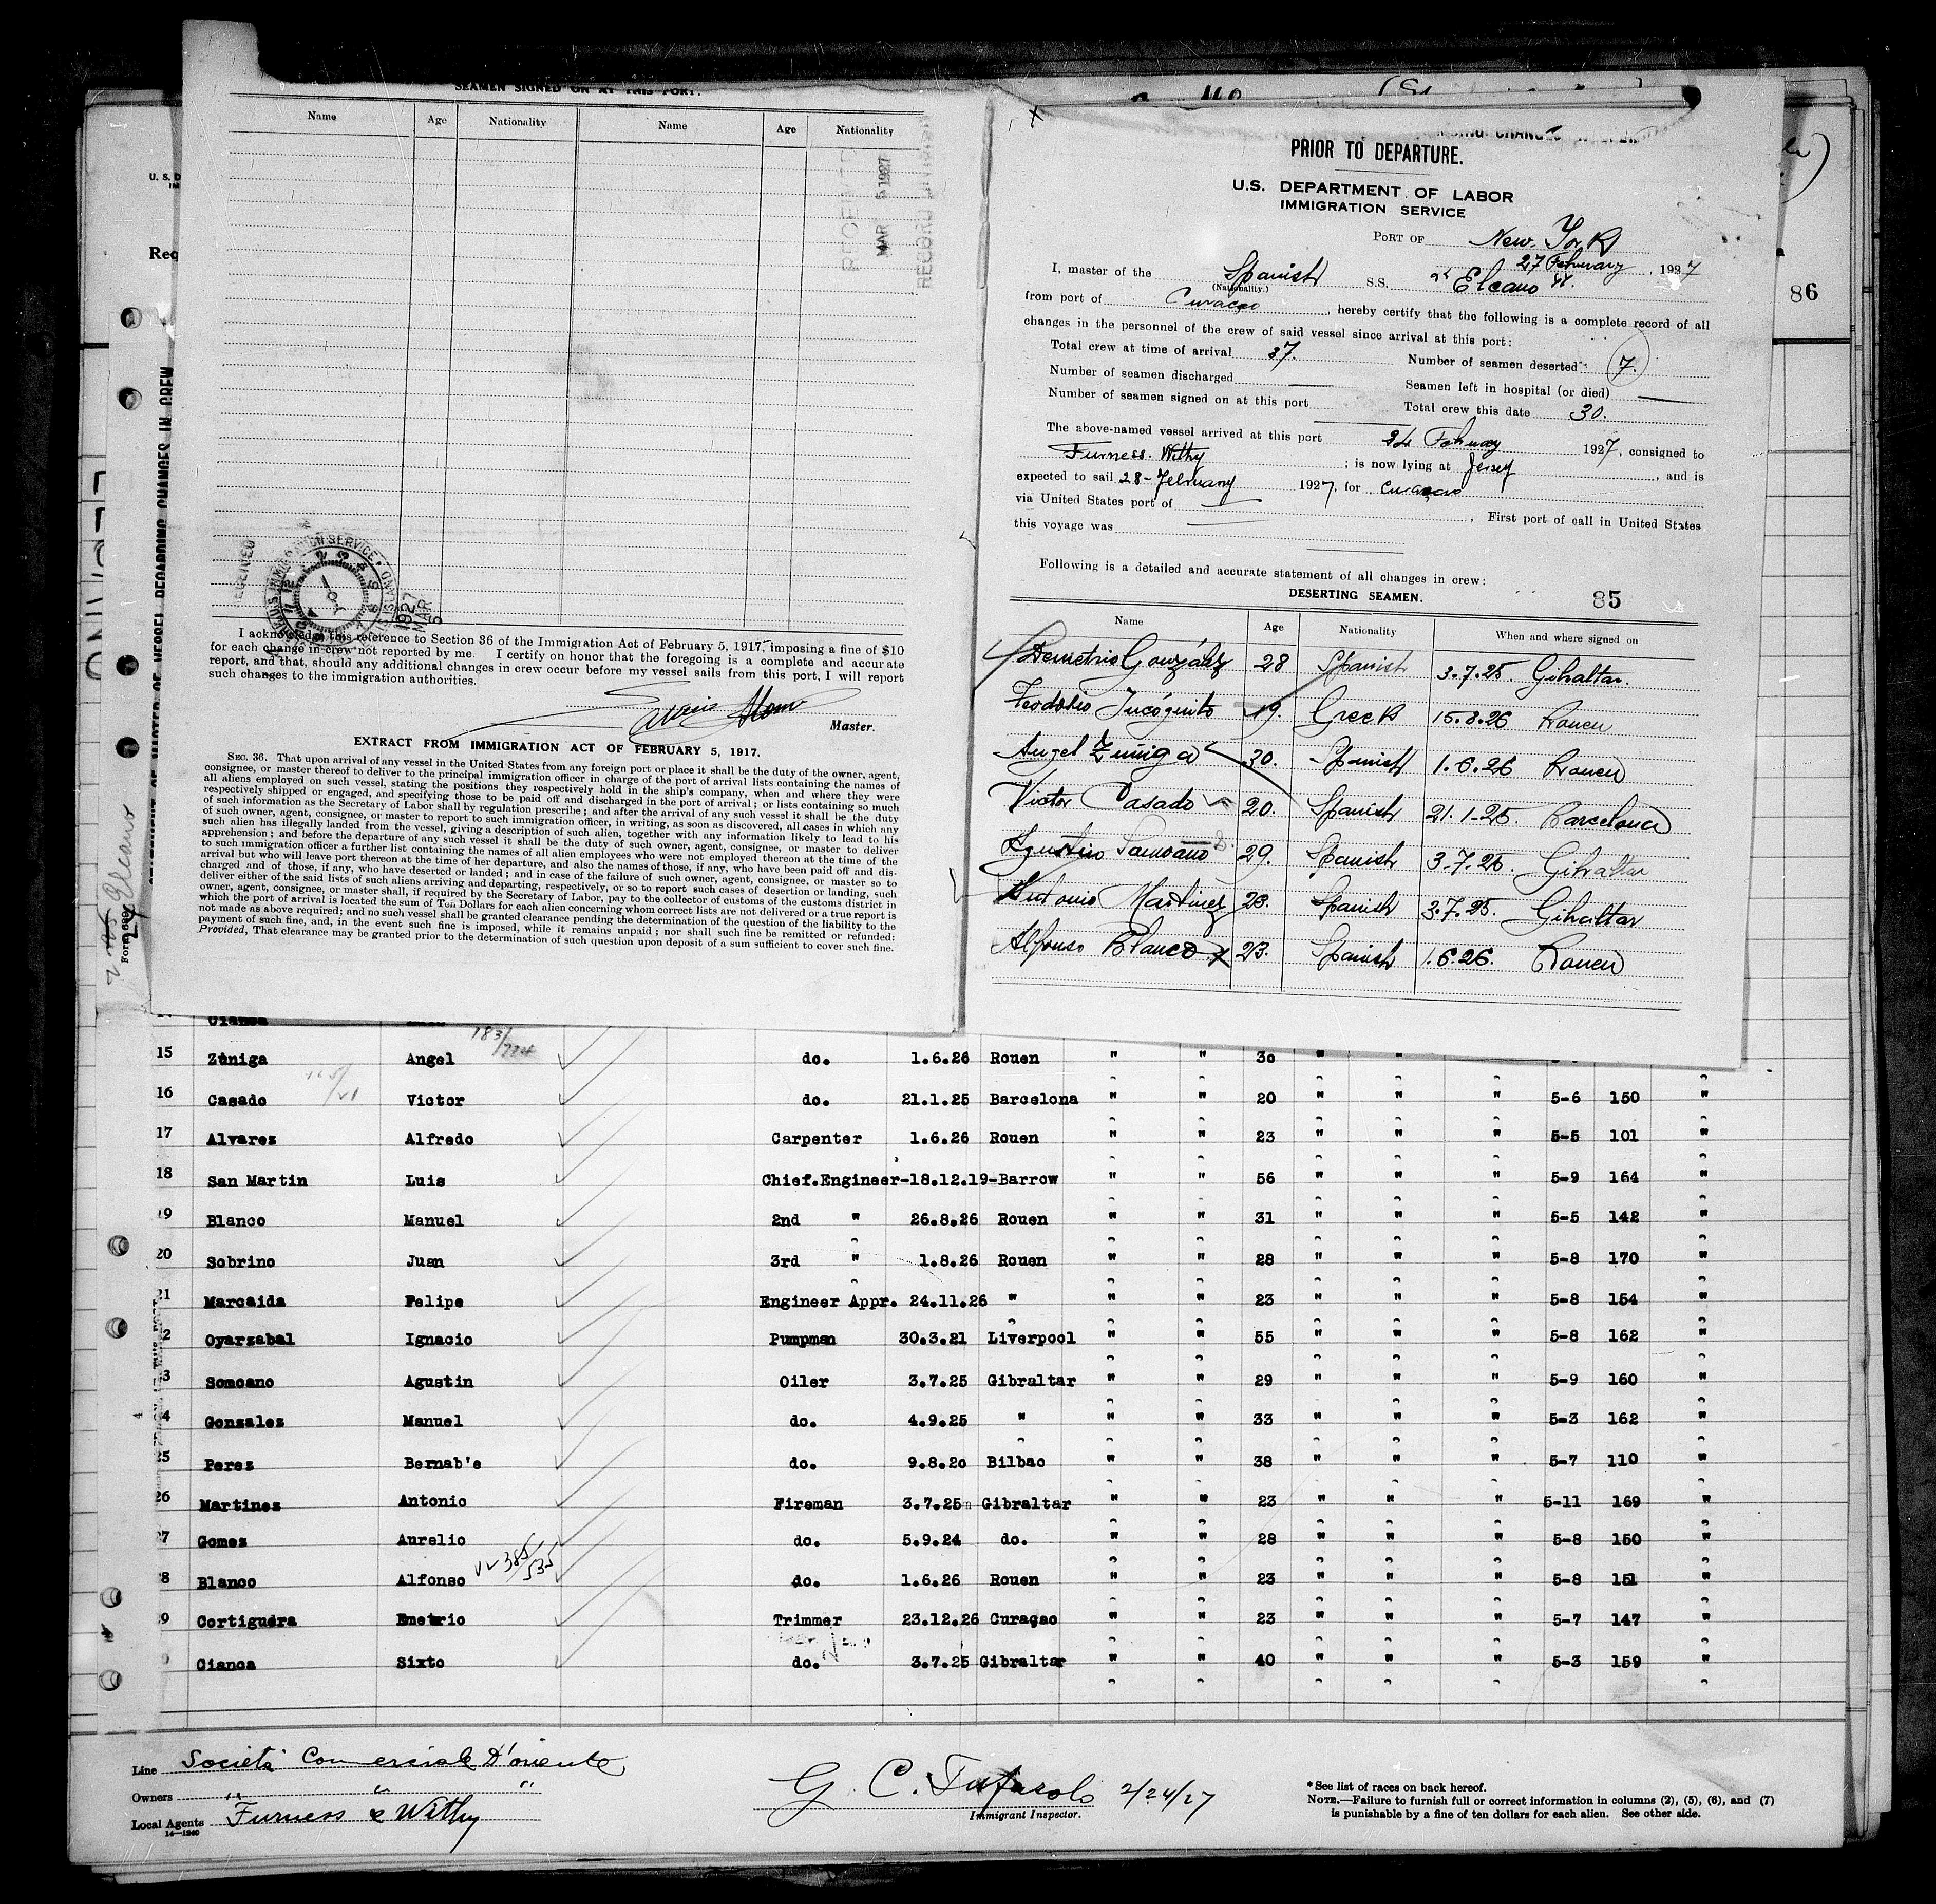 SEAMEN SIGNED ON AT THIS PORT.
Name Age Nationality Name Age Nationality
MAR 5 1927
RECORD DIVISION
1927
MAR
5
I acknowledge this reference to Section 36 of the Immigration Act of February 5, 1917, imposing a fine of $10
for each change in crew not reported by me. I certify on honor that the foregoing is a complete and accurate
report, and that, should any additional changes in crew occur before my vessel sails from this port, I will report
such changes to the immigration authorities.
Master.
EXTRACT FROM IMMIGRATION ACT OF FEBRUARY 5, 1917.
SEC. 36. That upon arrival of any vessel in the United States from any foreign port or place it shall be the duty of the owner, agent,
consignee, or master thereof to deliver to the principal immigration officer in charge of the port of arrival lists containing the names of
all aliens employed on such vessel, stating the positions they respectively hold in the ship's company, when and where they were
respectively shipped or engaged, and specifying those to be paid off and discharged in the port of arrival; or lists containing so much
of such information as the Secretary of Labor shall by regulation prescribe; and after the arrival of any such vessel it shall be the duty
of such owner, agent, consignee, or master to report to such immigration officer, in writing, as soon as discovered, all cases in which any
such alien has illegally landed from the vessel, giving a description of such alien, together with any information likely to lead to his
apprehension; and before the departure of any such vessel it shall be the duty of such owner, agent, consignee, or master to deliver
to such immigration officer a further list containing the names of all alien employees who were not employed thereon at the time of the
arrival but who will leave port thereon at the time of her departure, and also the names of those, if any, who have been paid off and dis-
charged and of those, if any, who have deserted or landed; and in case of the failure of such owner, agent, consignee, or master so to
deliver either of the said lists of such aliens arriving and departing, respectively, or so to report such cases of desertion or landing, such
owner, agent, consignee, or master shall, if required by the Secretary of Labor, pay to the collector of customs of the customs district in
which the port of arrival is located the sum of Ten Dollars for each alien concerning whom correct lists are not delivered or a true report is
not made as above required; and no such vessel shall be granted clearance pending the determination of the question of the liability to the
payment of such fine, and, in the event such fine is imposed, while it remains unpaid; nor shall such fine be remitted or refunded:
Provided, That clearance may be granted prior to the determination of such question upon deposit of a sum sufficient to cover such fine.
PRIOR TO DEPARTURE.
U.S. DEPARTMENT OF LABOR
IMMIGRATION SERVICE
PORT OF New. York
27 February, 1927
I, master of the Spanish S.S. "Elcano".
(Nationality.)
from port of Curaçao, hereby certify that the following is a complete record of all
changes in the personnel of the crew of said vessel since arrival at this port:
Total crew at time of arrival 37. Number of seamen deserted 7.
Number of seamen discharged Seamen left in hospital (or died)
Number of seamen signed on at this port Total crew this date 30.
The above-named vessel arrived at this port 24 February 1927, consigned to
Furness. Withy; is now lying at Jersey, and is
expected to sail 28-February 1927, for Curaçao
via United States port of . First port of call in United States
this voyage was
Following is a detailed and accurate statement of all changes in crew:
DESERTING SEAMEN. 85
Name Age Nationality When and where signed on
Demetrio González 28 Spanish 3.7.25. Gibraltar.
Teodosio Incógnito 19. Greek 15.8.26 Rouen
Angel Zuñiga 30. Spanish 1.6.26 Rouen
Victor Casado 20. Spanish 21.1-25. Barcelona
Agustin Somoano 29. Spanish 3-7.25. Gibraltar
Antonio Martinez 23. Spanish 3.7.25. Gibraltar
Alfonso Blanco x 23. Spanish 1.6.26. Rouen
86
Req
STATEMENT OF MASTER OF VESSEL REGARDING CHANGES IN CREW
Elcano
15 Zuniga Angel do. 1.6.26 Rouen " " 30 " " "
16 Casado Victor do. 21.1.25 Barcelona " " 20 " " " 5-6 150 "
17 Alvarez Alfredo Carpenter 1.6.26 Rouen " " 23 " " " 5-5 101 "
18 San Martin Luis Chief.Engineer-18.12.19-Barrow " " 56 " " " 5-9 164 "
19 Blanco Manuel 2nd " 26.8.26 Rouen " " 31 " " " 5-5 142 "
20 Sobrino Juan 3rd " 1.8.26 Rouen " " 28 " " " 5-8 170 "
21 Marcaida Felipe Engineer Appr. 24.11.26 " " " 23 " " " 5-8 154 "
2 Oyarzabal Ignacio Pumpman 30.3.21 Liverpool " " 55 " " " 5-8 162 "
3 Somoano Agustin Oiler 3.7.25 Gibraltar " " 29 " " " 5-9 160 "
4 Gonzales Manuel do. 4.9.25 " " " 33 " " " 5-3 162 "
25 Perez Bernab'e do. 9.8.20 Bilbao " " 38 " " " 5-7 110 "
26 Martinez Antonio Fireman 3.7.25 Gibraltar " " 23 " " " 5-11 169 "
27 Gomez Aurelio do. 5.9.24 do. " " 28 " " " 5-8 150 "
8 Blanco Alfonso do. 1.6.26 Rouen " " 23 " " " 5-8 151 "
9 Cortiguera Emetrio Trimmer 23.12.26 Curaçao " " 23 " " " 5-7 147 "
Cianca Sixto do. 3.7.25 Gibraltar " " 40 " " " 5-3 159 "
Line Societá Commerciale D'oriente
Owners " " "
Local Agents Furness & Withy
14-1240
G. C. Tufarolo 2/24/27
Immigrant Inspector.
* See list of races on back hereof.
NOTE.—Failure to furnish full or correct information in columns (2), (5), (6), and (7)
is punishable by a fine of ten dollars for each alien. See other side.